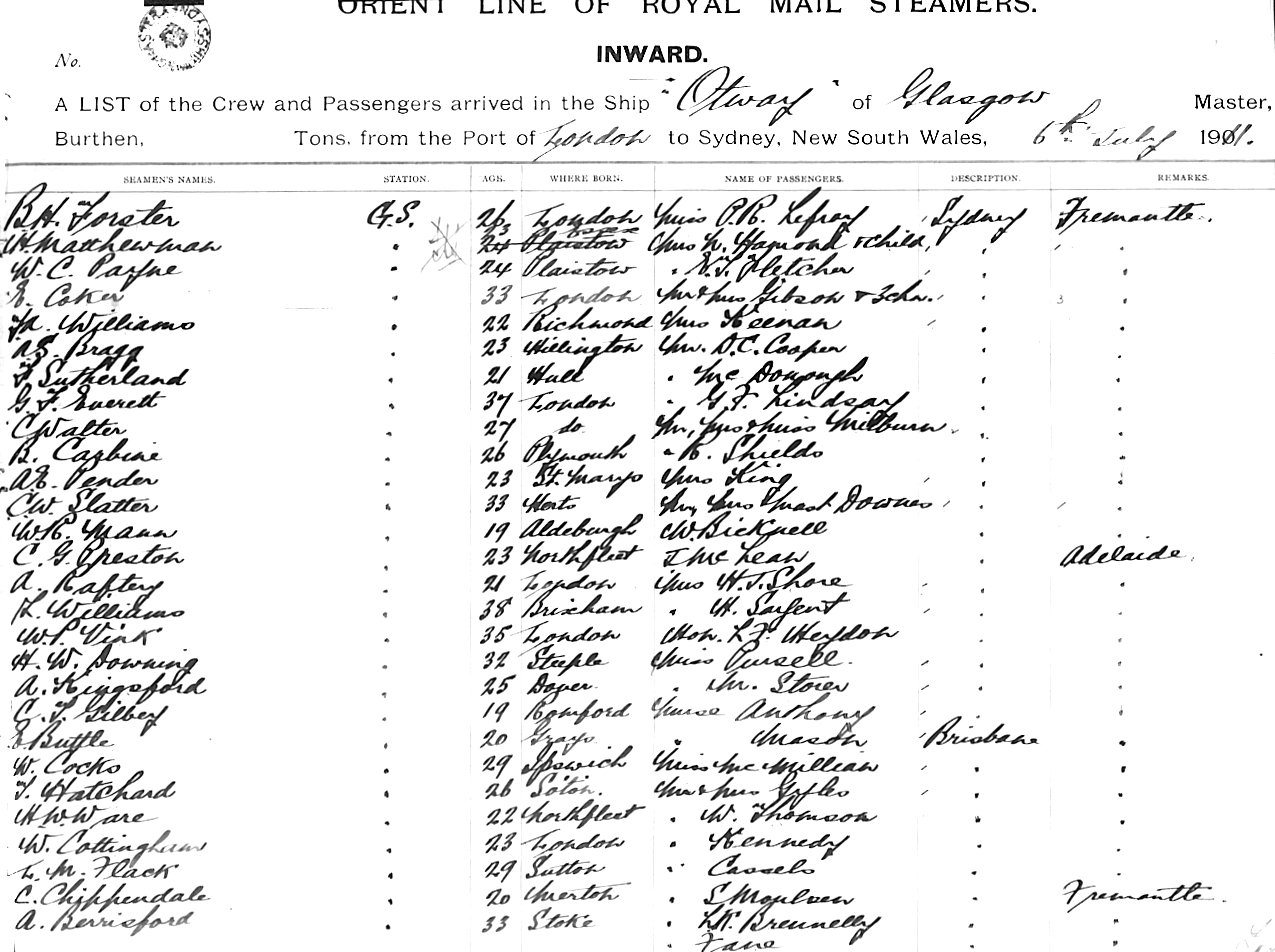 ORIENT LINE OF ROYAL MAIL STEAMERS.
INWARD.
No.
A LIST of the Crew and Passengers arrived in the Ship "Otway" of Glasgow Master,
Burthen, Tons, from the Port of London to Sydney, New South Wales, 6th July 1911.
SEAMEN'S NAMES. STATION. AGE. WHERE BORN. NAME OF PASSENGERS. DESCRIPTION. REMARKS.
B.H. Forster G.S. 26 London Miss P.R. Lefroy Sydney Fremantle.
Matthewman " 24 Plaistow Essex Mrs N. Hamond & child " "
W. C. Payne " 24 Plaistow " N.S. Fletcher " "
E. Coker " 33 London Mr & Mrs Gibson & 3 chn. " "
Williams " 22 Richmond Mrs Keenan " "
Bragg " 23 Hillington Mr. D.C. Cooper " "
F. Sutherland " 21 Hull " Mc Donough " "
G. F. Everett " 37 London " G.F. Lindsay " "
C Walter " 27 do Mr, Mrs & Miss Milburn " "
B. Carbine " 26 Plymouth " R. Shields " "
A.E. Pender " 23 St. Marys Mrs King " "
C.W. Slatter " 33 Herts Mr, Mrs & Mast Downes " "
W.R. Mann " 19 Aldeburgh W. Bicknell " "
C. G. Preston " 23 Northfleet J Mc Lean " Adelaide.
A. Raftery " 21 London Mrs H.J. Shore " "
Williams " 38 Brixham " H. Sargent " "
Vink " 35 London Hon. L.F. Heydon " "
H. W. Downing " 32 Steeple Miss Pursell. " "
A. Kingsford " 25 Dover " M. Storer " "
C. F. Gilbey " 19 Romford Nurse Anthony " "
E Buttle " 20 Grays " Mason Brisbane "
W. Cocks " 29 Ipswich Miss Mc Millian " "
Hatchard " 26 So'ton. Mr & Mrs Gyles " "
H.W. Ware " 22 Northfleet " W. Thomson " "
W. Cottingham " 23 London " Kennedy " "
L. M. Flack " 29 Sutton " Cassels " "
C. Chippendale " 20 Merton " S Moulven " Fremantle.
A. Berrisford " 33 Stoke " Brennelly " "
" Fane " "